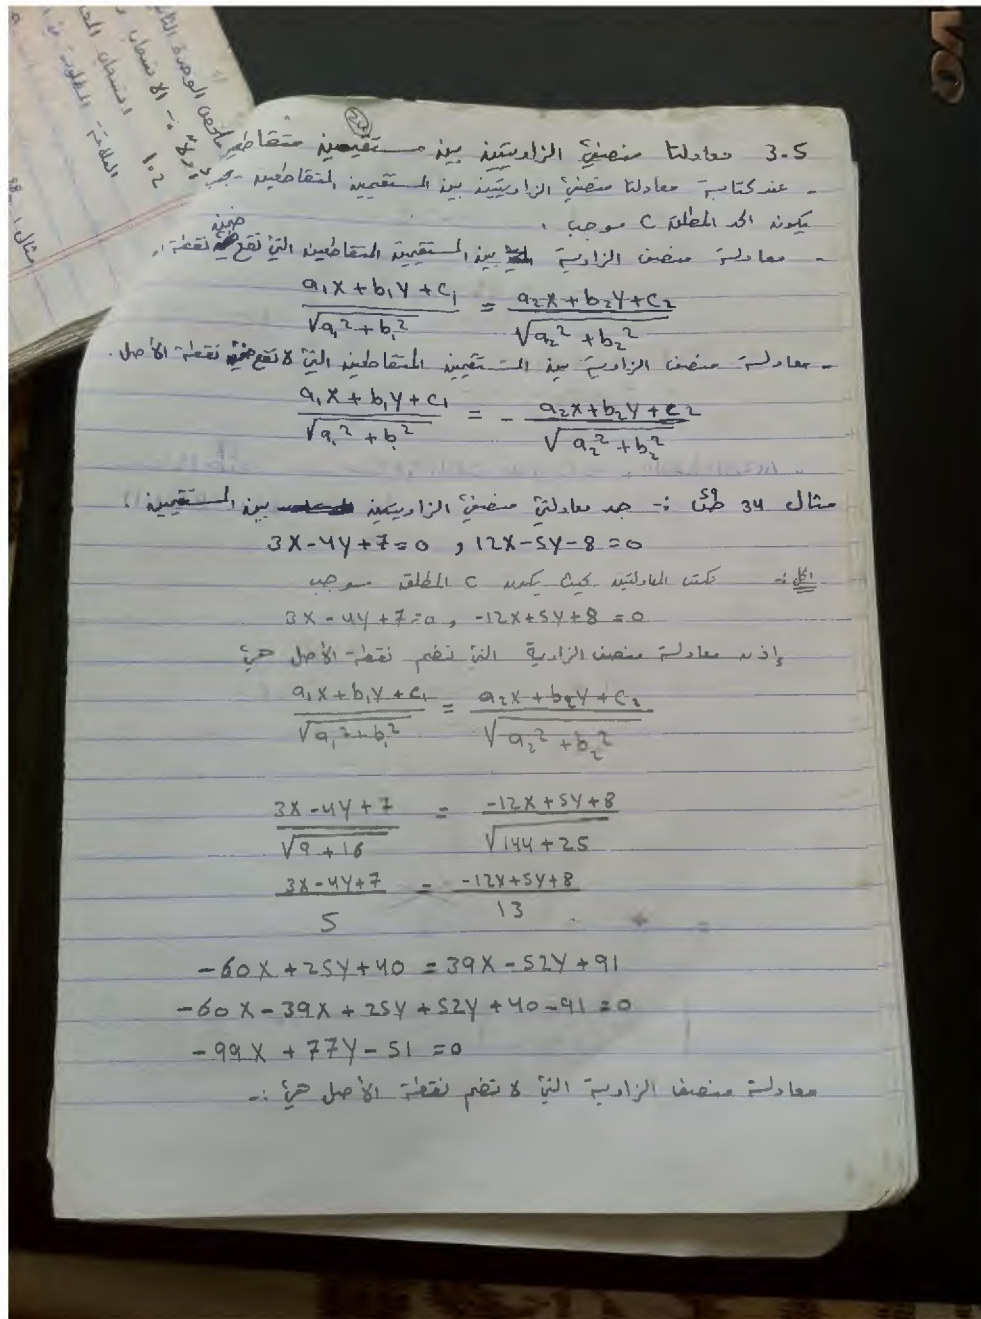 3.5 معادلتا منصفي الزاويتين بين مستقيمين متقاطعين
- عند كتابة معادلتا منصفي الزاويتين بين المستقيمين المتقاطعين يجب
يكون الحد المطلق C موجب .
- معادلة منصف الزاوية بين المستقيمين المتقاطعين التي تقع ضمن نقطة
a₁x + b₁y + c₁ / √a₁² + b₁² = a₂x + b₂y + c₂ / √a₂² + b₂²
- معادلة منصف الزاوية بين المستقيمين المتقاطعين التي لا تقع ضمن نقطة الأصل .
a₁x + b₁y + c₁ / √a₁² + b₁² = - a₂x + b₂y + c₂ / √a₂² + b₂²
مثال 34 ص59 :- جد معادلتي منصفي الزاويتين بين المستقيمين :
3x - 4y + 7 = 0 , 12x - 5y - 8 = 0
الحل :- نكتب المعادلتين بحيث يكون C المطلق موجب
3x - 4y + 7 = 0 , -12x + 5y + 8 = 0
إذن معادلة منصف الزاوية التي تضم نقطة الأصل هي
a₁x + b₁y + c₁ / √a₁² + b₁² = a₂x + b₂y + c₂ / √a₂² + b₂²
3x - 4y + 7 / √9 + 16 = -12x + 5y + 8 / √144 + 25
3x - 4y + 7 / 5 = -12x + 5y + 8 / 13
-60x + 25y + 40 = 39x - 52y + 91
-60x - 39x + 25y + 52y + 40 - 91 = 0
-99x + 77y - 51 = 0
معادلة منصف الزاوية التي لا تضم نقطة الأصل هي :-